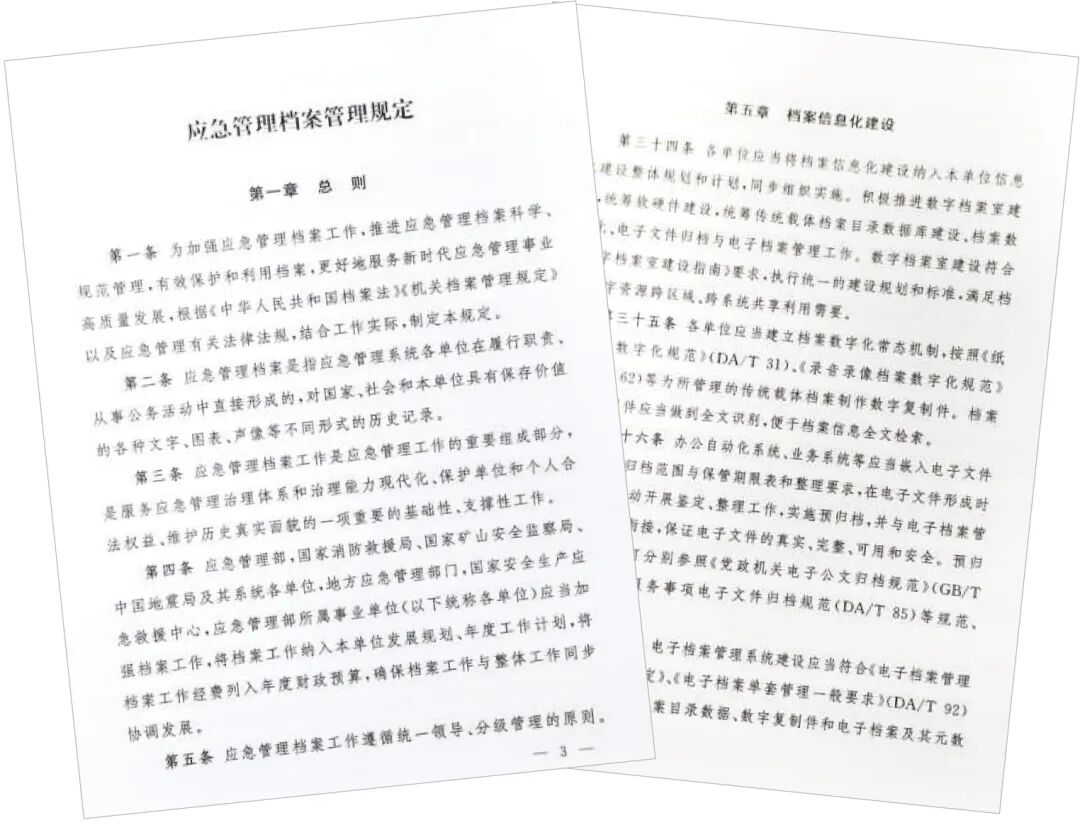 应急管理档案管理规定
第一章 总 则
第一条 为加强应急管理档案工作,推进应急管理档案科学、
规范管理,有效保护和利用档案,更好地服务新时代应急管理事业
高质量发展,根据《中华人民共和国档案法》《机关档案管理规定》
以及应急管理有关法律法规,结合工作实际,制定本规定。
第二条 应急管理档案是指应急管理系统各单位在履行职责、
从事公务活动中直接形成的,对国家、社会和本单位具有保存价值
的各种文字、图表、声像等不同形式的历史记录。
第三条 应急管理档案工作是应急管理工作的重要组成部分,
是服务应急管理治理体系和治理能力现代化、保护单位和个人合
法权益、维护历史真实面貌的一项重要的基础性、支撑性工作。
第四条 应急管理部,国家消防救援局、国家矿山安全监察局、
中国地震局及其系统各单位,地方应急管理部门,国家安全生产应
急救援中心,应急管理部所属事业单位(以下统称各单位)应当加
强档案工作,将档案工作纳入本单位发展规划、年度工作计划,将
档案工作经费列入年度财政预算,确保档案工作与整体工作同步
协调发展。
第五条 应急管理档案工作遵循统一领导、分级管理的原则。
— 3 —
第五章 档案信息化建设
第三十四条 各单位应当将档案信息化建设纳入本单位信息
建设整体规划和计划,同步组织实施。积极推进数字档案室建
,统筹软硬件建设,统筹传统载体档案目录数据库建设、档案数
、电子文件归档与电子档案管理工作。数字档案室建设符合
字档案室建设指南》要求,执行统一的建设规划和标准,满足档
字资源跨区域、跨系统共享利用需要。
第三十五条 各单位应当建立档案数字化常态机制,按照《纸
数字化规范》(DA/T 31)、《录音录像档案数字化规范》
62)等为所管理的传统载体档案制作数字复制件。档案
件应当做到全文识别,便于档案信息全文检索。
十六条 办公自动化系统、业务系统等应当嵌入电子文件
归档范围与保管期限表和整理要求,在电子文件形成时
动开展鉴定、整理工作,实施预归档,并与电子档案管
衔接,保证电子文件的真实、完整、可用和安全。预归
可分别参照《党政机关电子公文归档规范》(GB/T
服务事项电子文件归档规范(DA/T 85)等规范、
电子档案管理系统建设应当符合《电子档案管理
定》、《电子档案单套管理一般要求》(DA/T 92)
案目录数据、数字复制件和电子档案及其元数